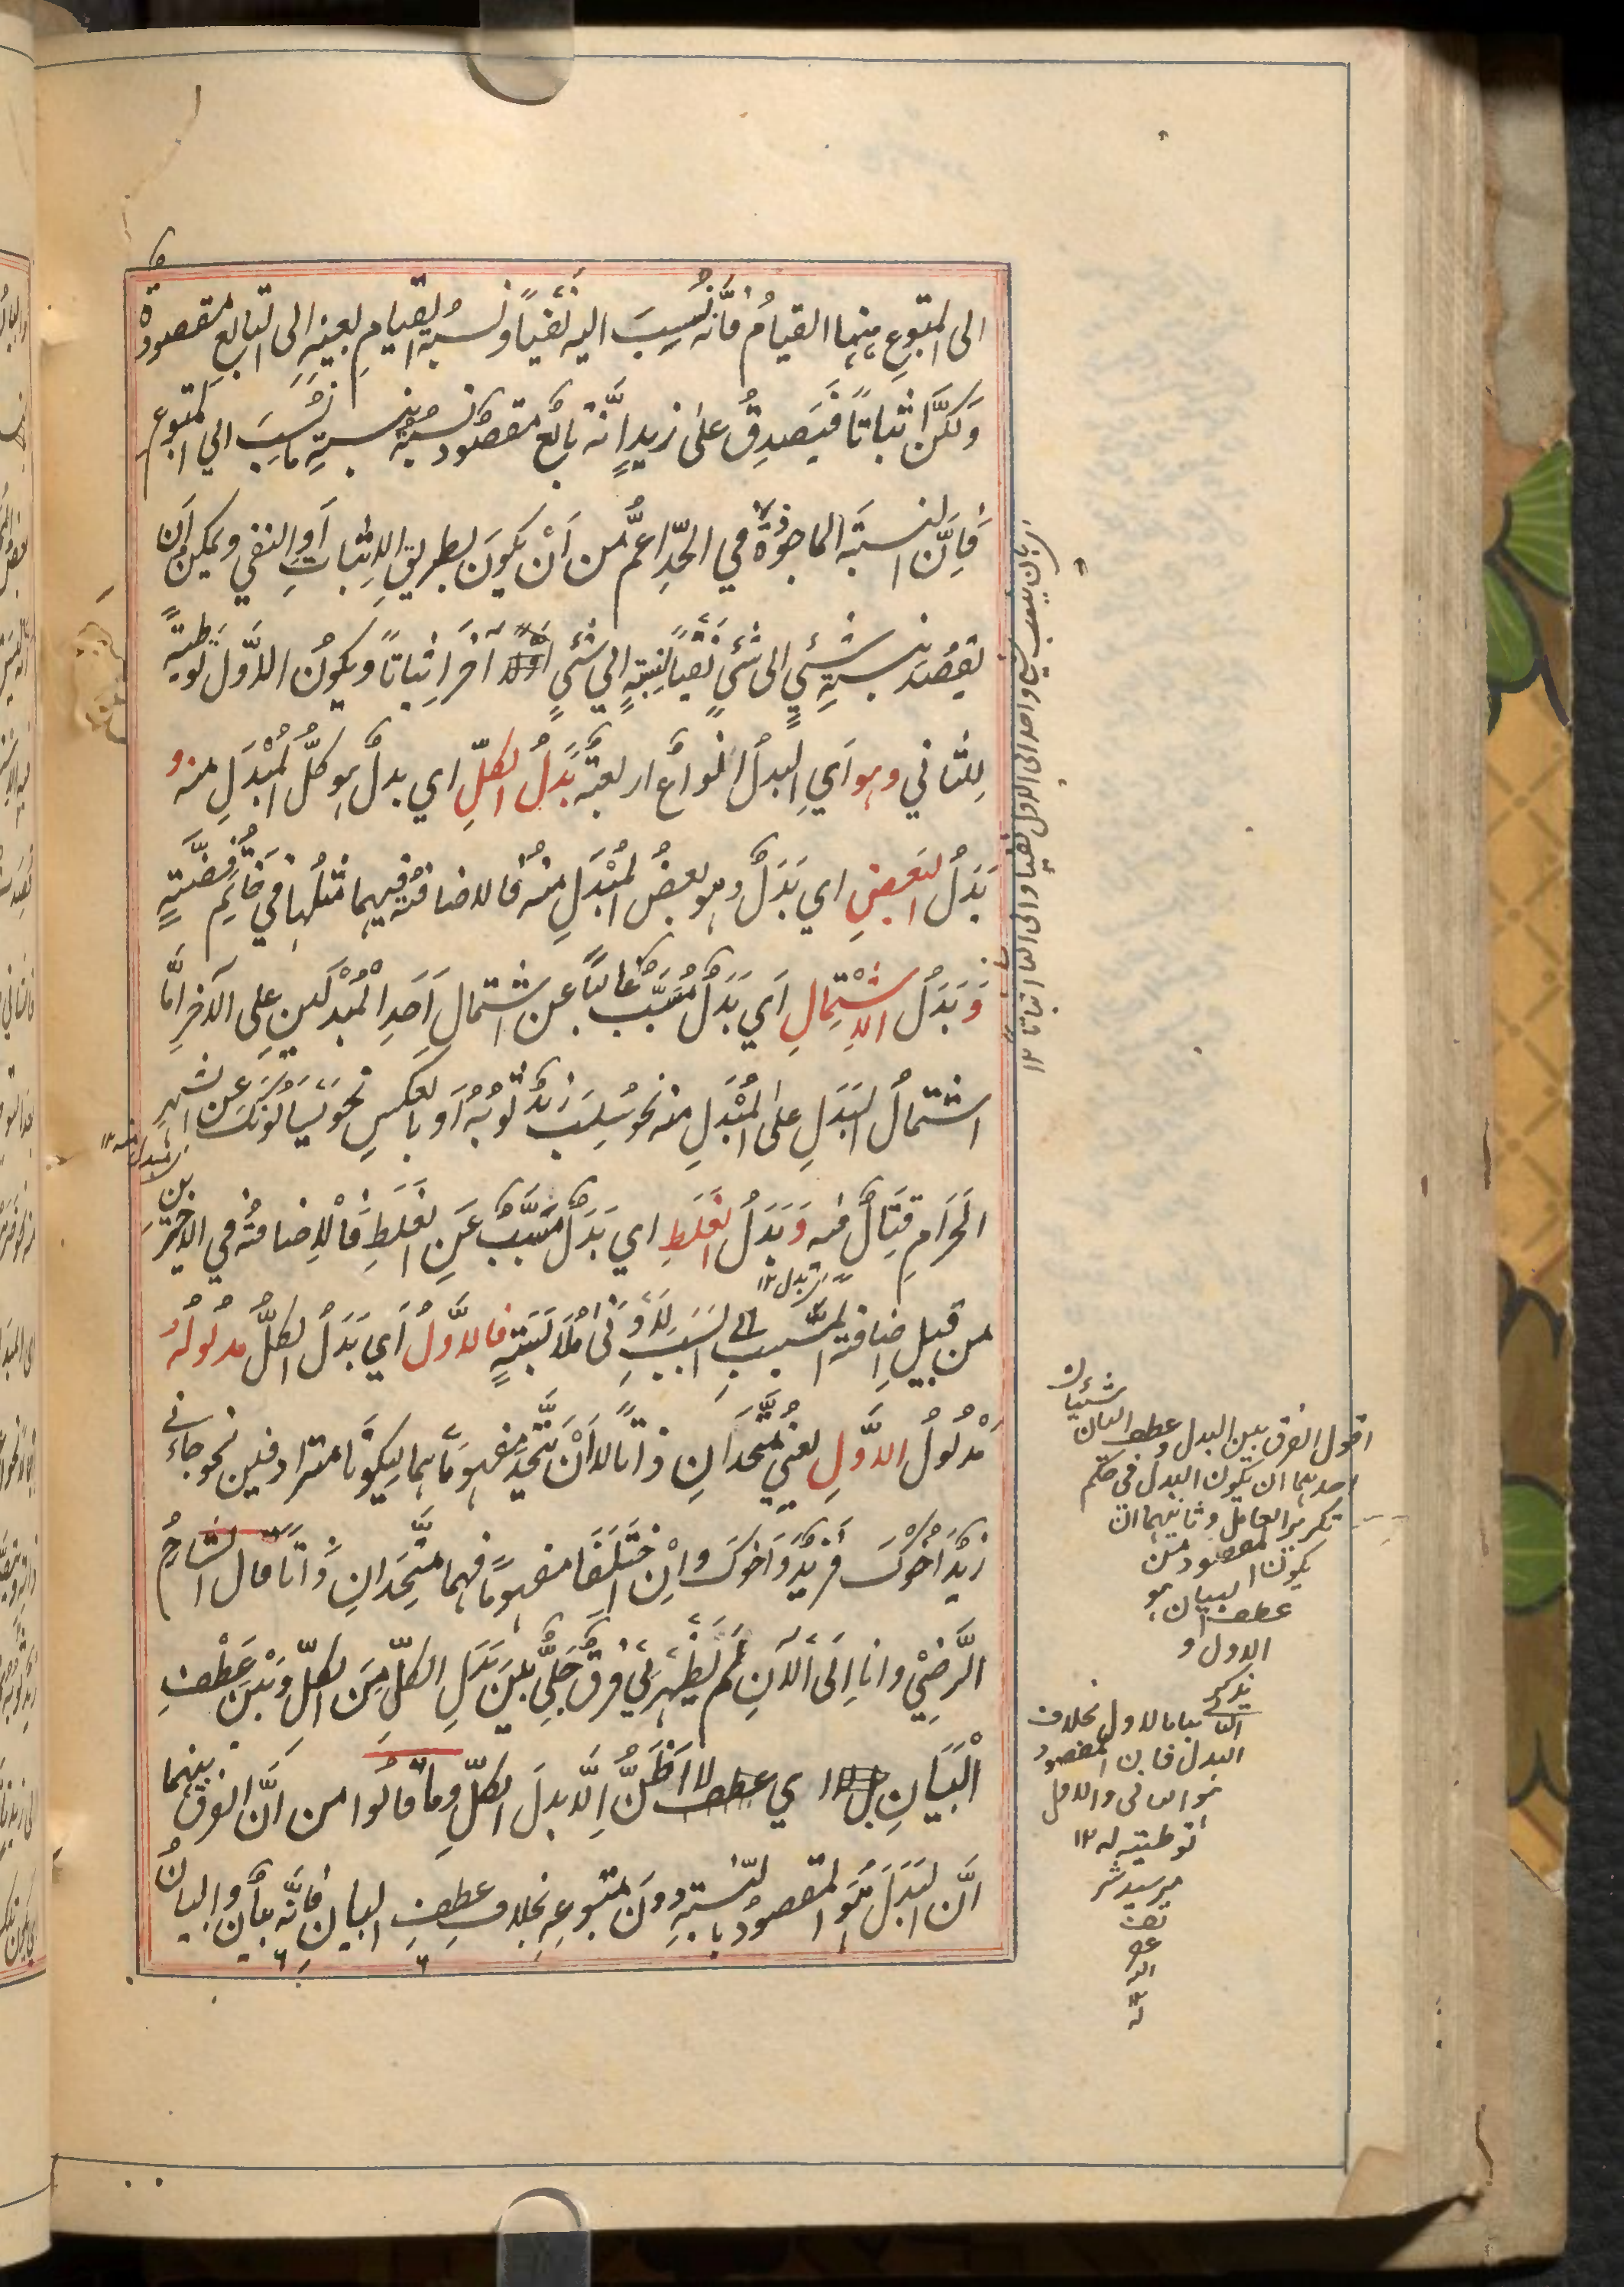 الى المتبوع بينهما القيام فانّه نُسِبَ اليه نفياً ونسبة القيام بعينه الى التابع مقصودة
ولكن اثباتاً فيَصدِقُ على زيدٍ انّه تابع مقصود نسبته بنسبةِ ما نُسِبَ الي المتبوع
فَاِنَّ النسبَةَ الماخوذةَ في الحدِّ اعمُّ من اَنْ يكونَ بطريقِ الاِثباتِ اَوِ النفي ويمكن اَن
يقصُدَ بنسبةِ شئيٍ الى شئيٍ نفياً نسبته الي شئيٍ آخَر اِثباتاً ويكونُ الاوّل توطيَةً
لِلثاني وهو اَيِ البدلُ انواعٌ اربعةٌ بَدَلُ الكلِّ اي بدلٌ هو كلُّ المُبْدَلِ منه و
بَدَلُ البَعضِ اي بَدَلٌ وهو بعضُ المُبْدَلِ منه فالاضافة فيهما مثلُها في خاتَمِ فِضَّةٍ
وَبَدَلُ الاِشْتِمالِ اَي بَدَلٌ مُسَبَّبٌ غالباً عن اشتمالِ اَحَدِ الْمُبْدَلَين على الآخرِ امَّا
اشتمالُ البَدَلِ على المُبْدَلِ منه نحو سُلِبَ زيدٌ ثوبُهُ اَو بالعكسِ نحو يَسْأَلُونَكَ عَنِ الشهرِ
الحَرامِ قِتَالٍ فيه وَبَدَلُ الغَلَطِ اي بَدَلٌ مُسَبَّبٌ عَنِ الغَلَطِ فَالْاِضافةُ في الاخيرَين
من قبيل اِضافةِ المسَبَّبِ الى السَبَبِ لِاَدْنى مُلَابَسَةٍ فالاوَّلُ اَي بَدَلُ الكلِّ مدلولُهُ
مَدْلولُ الاوَّلِ يعني مُتَّحدَانِ ذاتاً لا اَنْ يَتَّحِدَ مفهوماهما ليكونا مترادفين نحو جاءني
زيدٌ اَخُوكَ فزيدٌ وَاَخُوكَ واِنِ اخْتَلَفَا مفهوماً فهما متَّحِدَانِ ذاتاً قال الشارحُ
الرَّضِيُّ وانا اِلَى الْآنِ لم يَظْهَر لي فرقٌ جَلِيٌّ بَيْنَ بَدَلِ الكلِّ مِنَ الكلِّ وَبَيْنَ عَطْفِ
الْبَيَانِ بل لا اري عطف لا اَظُنُّ اِلَّا بدلَ الكلِّ وما قالُوا من اَنَّ الفرق بينهما
انَّ البَدَلَ هُوَ المقصودُ بالنسبةِ دونَ متبوعِهِ بخلافِ عطفِ البيانِ فاِنَّه بيانٌ والبيانُ
شيئان
اقول الفرق بين البدل وعطف البيان
احدهما ان يكون البدل في حكم
تكرير العامل وثانيهما ان
يكون المقصود من
عطف البيان هو
الاول و
يذكر
الثاني بيانا للاول بخلاف
البدل فان المقصود
هو الثاني والاول
توطئته له ١٢
مير سيد شر
يف